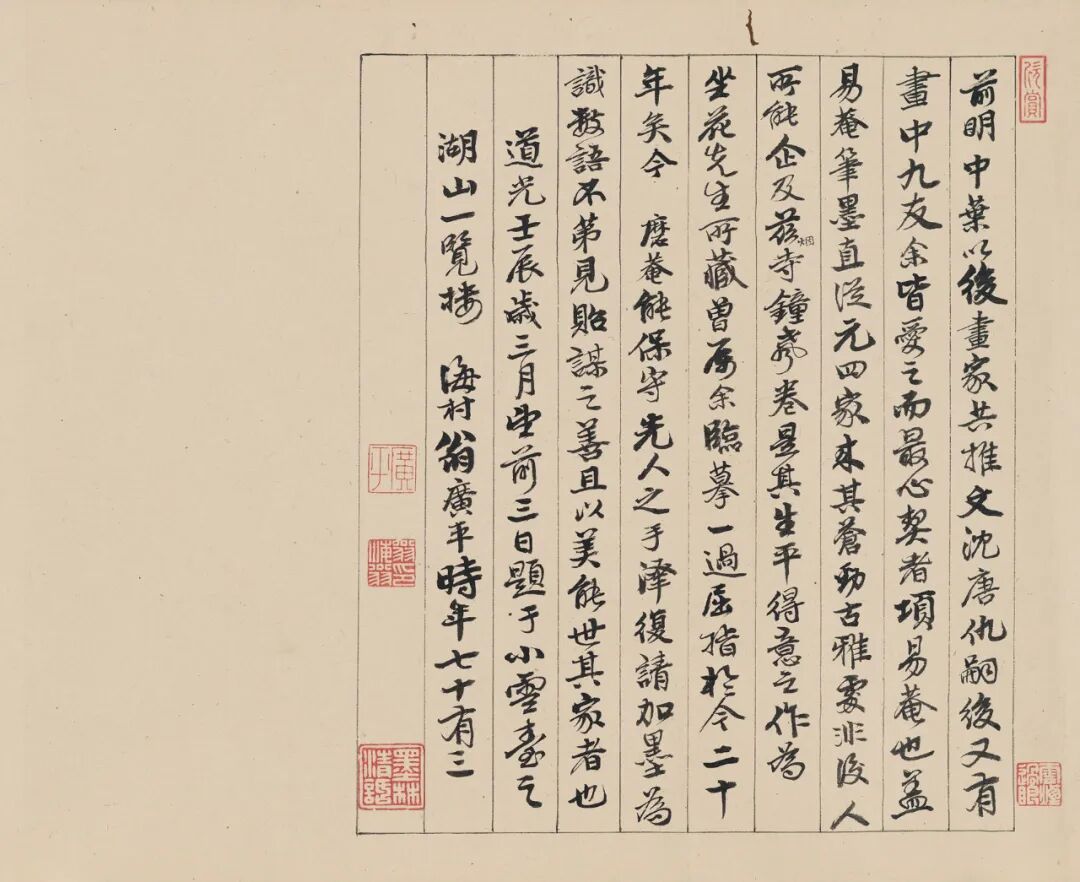 前明中葉以後畫家共推文沈唐仇嗣後又有
畫中九友余皆愛之而最心契者項易菴也蓋
易菴筆墨直從元四家來其蒼勁古雅處非後人
所能企及茲烟寺鐘聲卷是其生平得意之作為
坐花先生所藏曾屬余臨摹一過屈指於今二十
年矣今 磨菴能保守先人之手澤復請加墨為
識數語不第見貽謀之善且以美能世其家者也
道光壬辰歲三月望前三日題于小雲臺之
湖山一覽樓 海村翁廣平時年七十有三
廣平
墨林清話